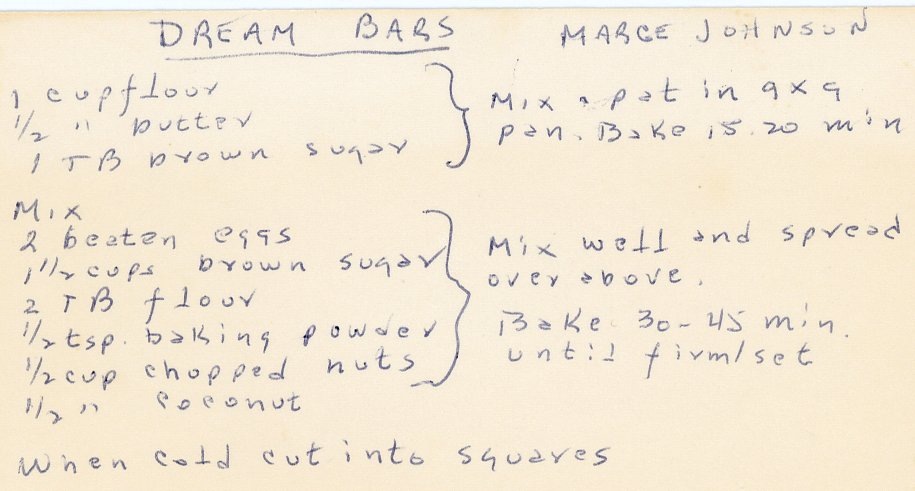 DREAM BARS MARGE JOHNSON
1 cup flour
1/2 " butter
1 TB brown sugar
Mix & pat in 9x9
pan. Bake 15-20 min
Mix
2 beaten eggs
1 1/2 cups brown sugar
2 TB flour
1/2 tsp. baking powder
1/2 cup chopped nuts
1/2 " coconut
Mix well and spread
over above.
Bake 30-45 min.
until firm/set
When cold cut into squares